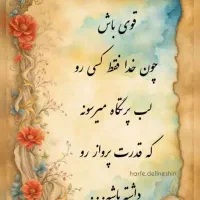 قوی باش
چون خدا فقط کسی رو
لب پرتگاه میرسونه
که قدرت پرواز رو
harfe.delneshin
داشته باشه...